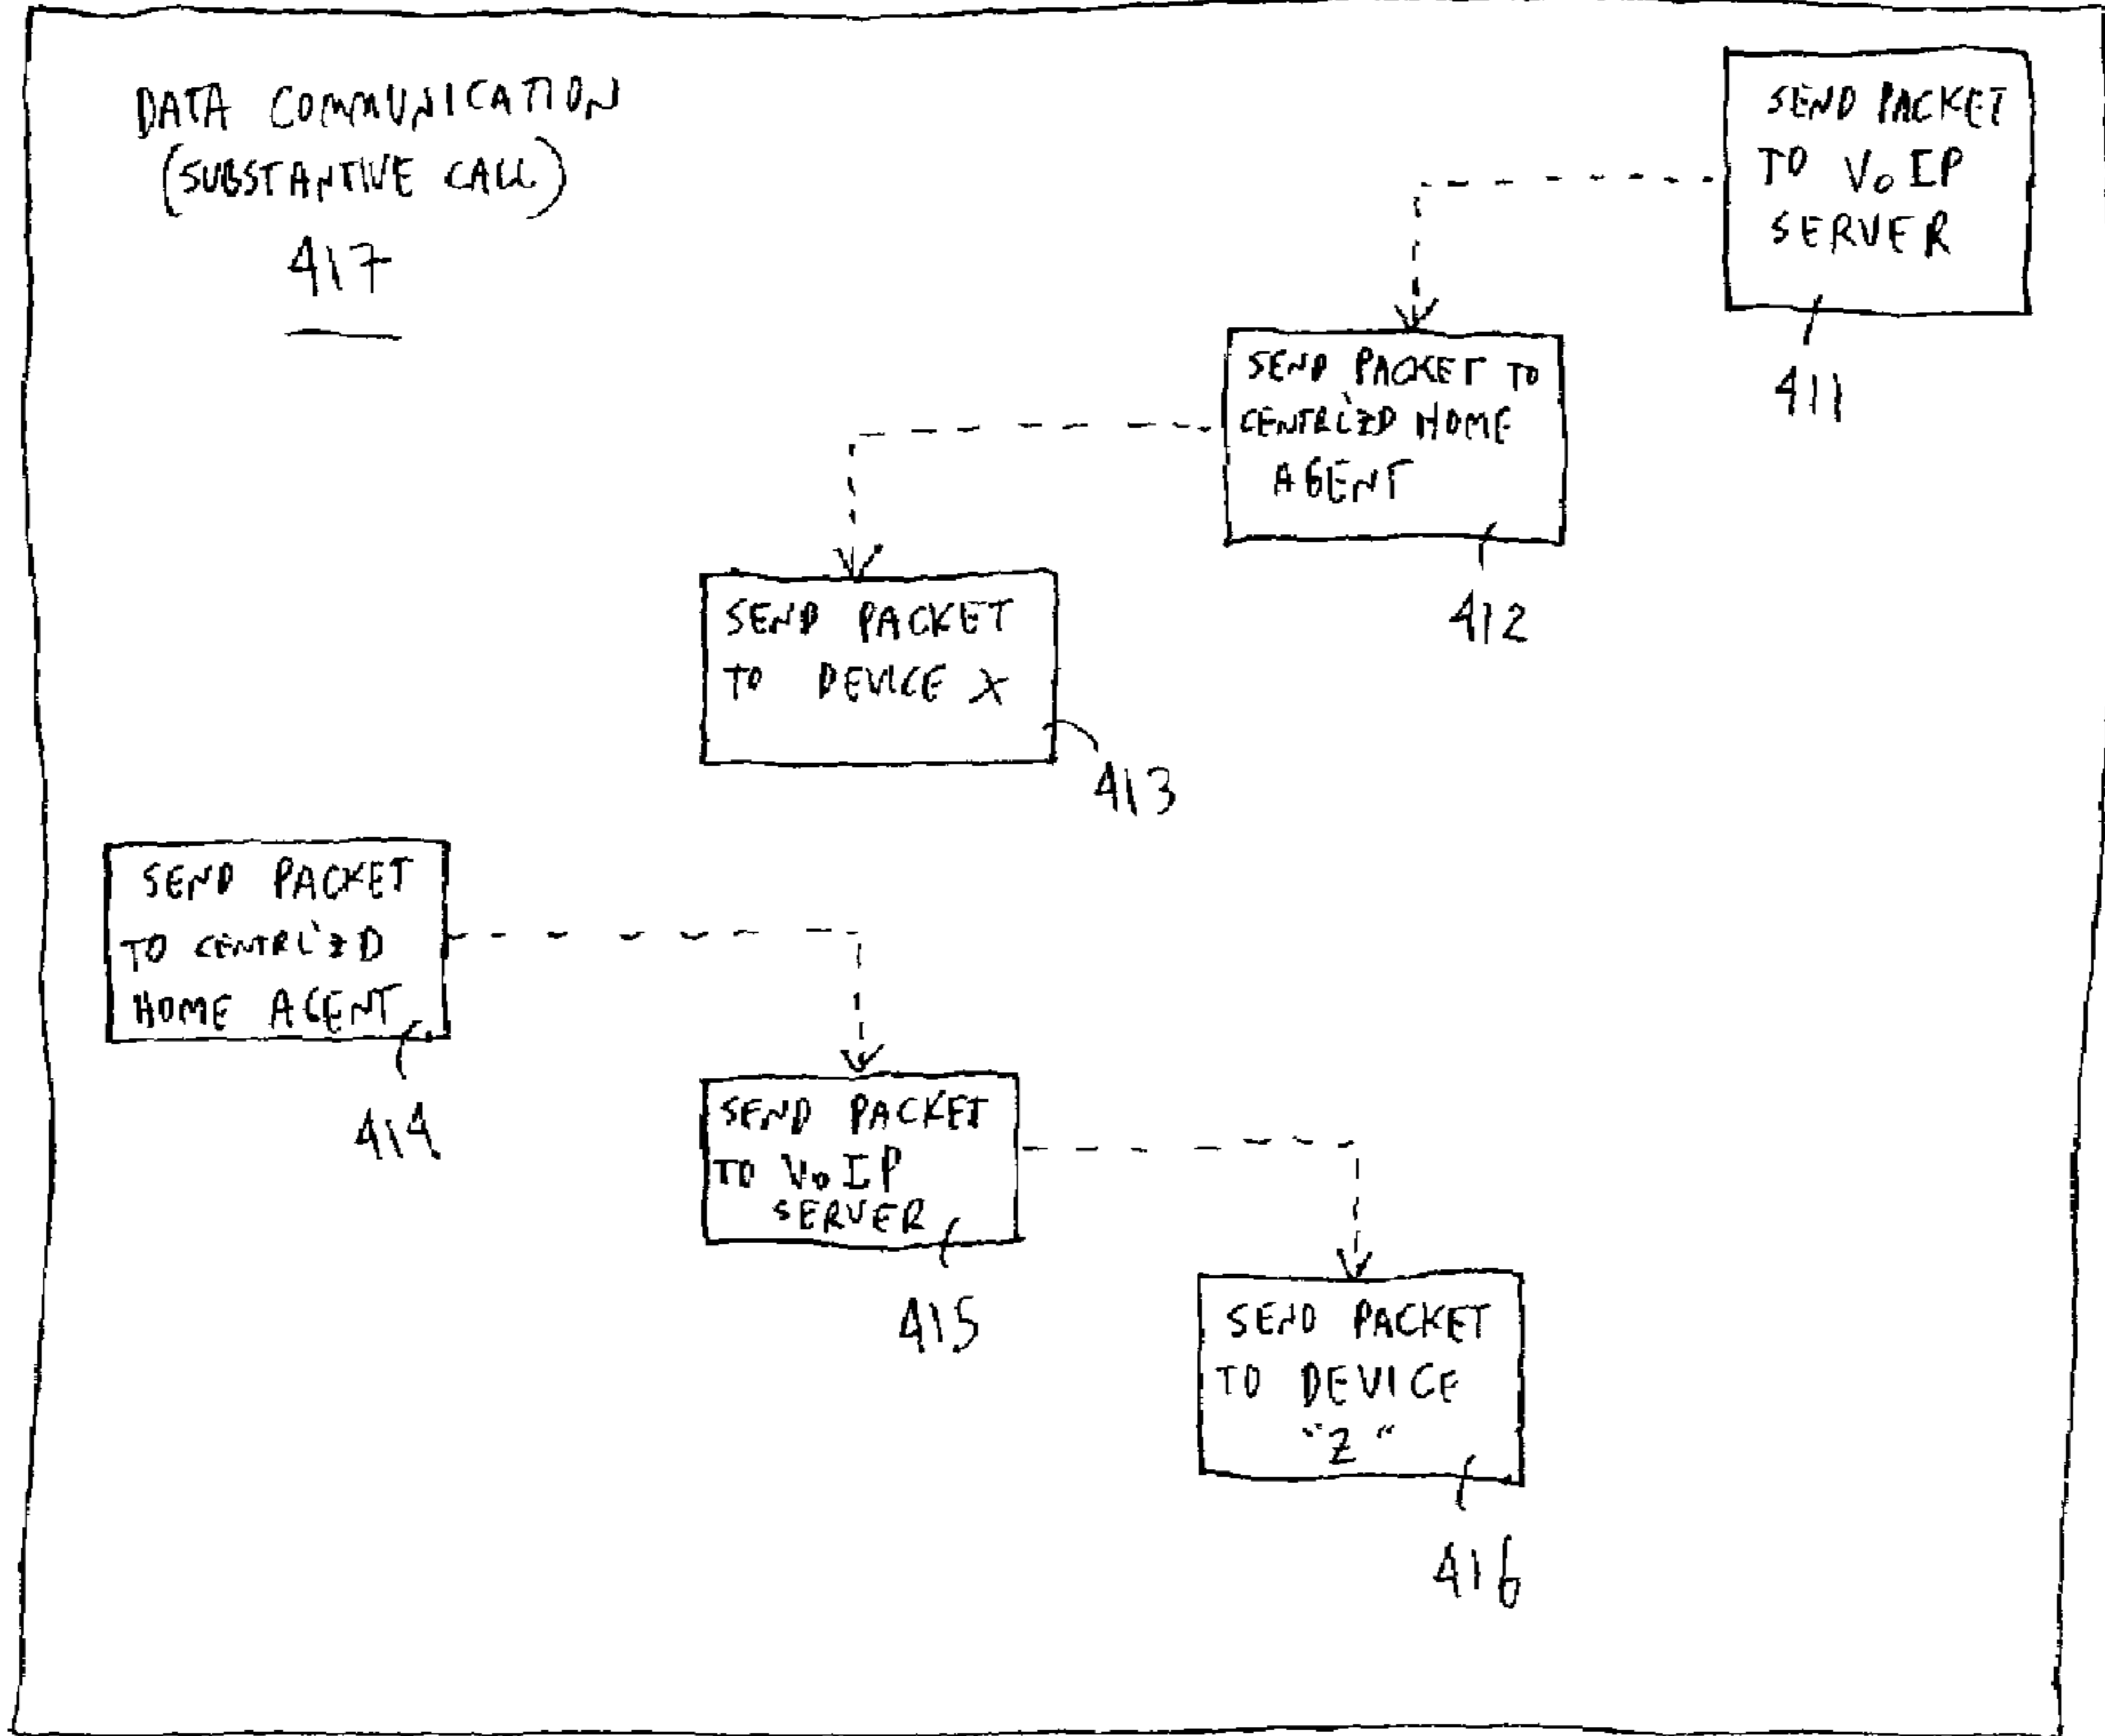 DATA COMMUNICATION
(SUBSTANTIVE CALL)
417
SEND PACKET
TO VoIP
SERVER
411
SEND PACKET TO
CENTRL'ZD HOME
AGENT
412
SEND PACKET
TO DEVICE X
413
SEND PACKET
TO CENTRL'ZD
HOME AGENT
414
SEND PACKET
TO VoIP
SERVER
415
SEND PACKET
TO DEVICE
"Z"
416